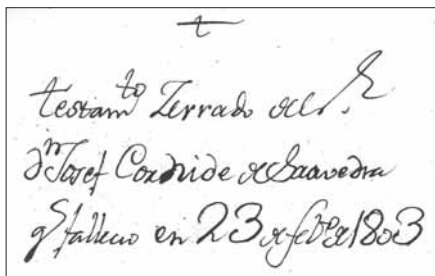 testam^to Zerrado del S^r.
d^n Josef Cornide de Saavedra
q^e falleció en 23 de feb^o de 1803